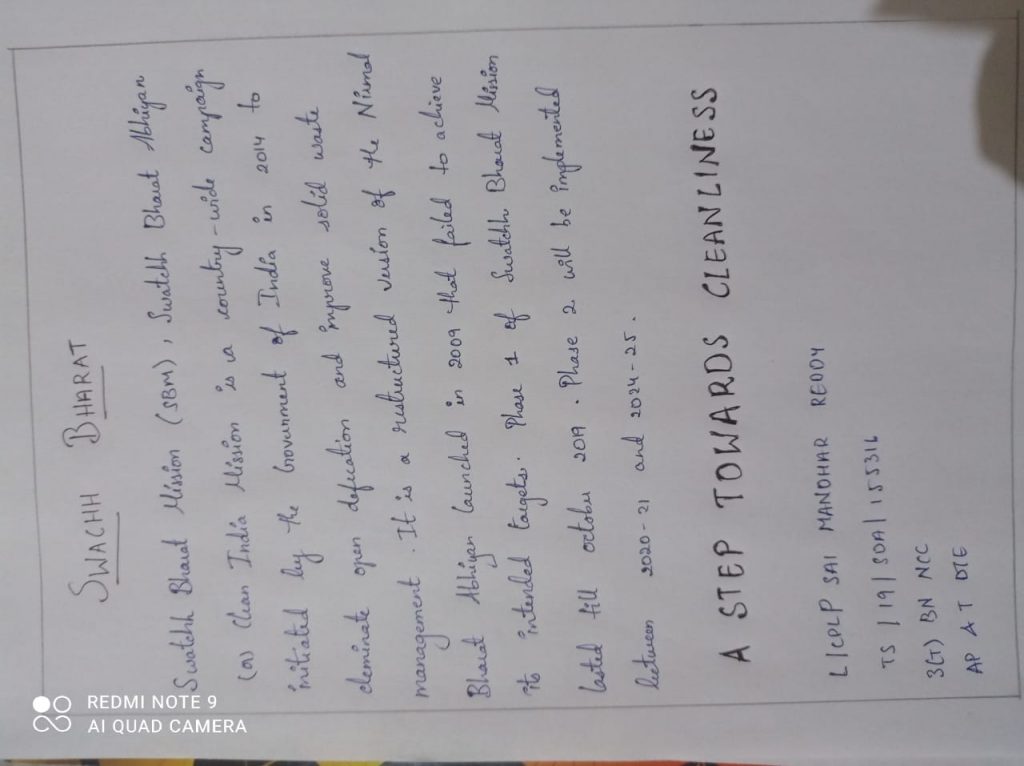 SWACHH BHARAT
Swatchh Bharat Mission (SBM), Swatchh Bharat Abhiyan
(or) Clean India Mission is a country-wide campaign
initiated by the Government of India in 2014 to
eleminate open defication and improve solid waste
management. It is a restructured version of the Nirmal
Bharat Abhiyan launched in 2009 that failed to achieve
its intended targets. Phase 1 of Swatchh Bharat Mission
lasted till october 2019. Phase 2 will be implemented
between 2020-21 and 2024-25.
A STEP TOWARDS CLEANLINESS
L/CPL P SAI MANOHAR REDDY
TS/19/SDA/155316
3(T) BN NCC
AP & T DTE
REDMI NOTE 9
AI QUAD CAMERA